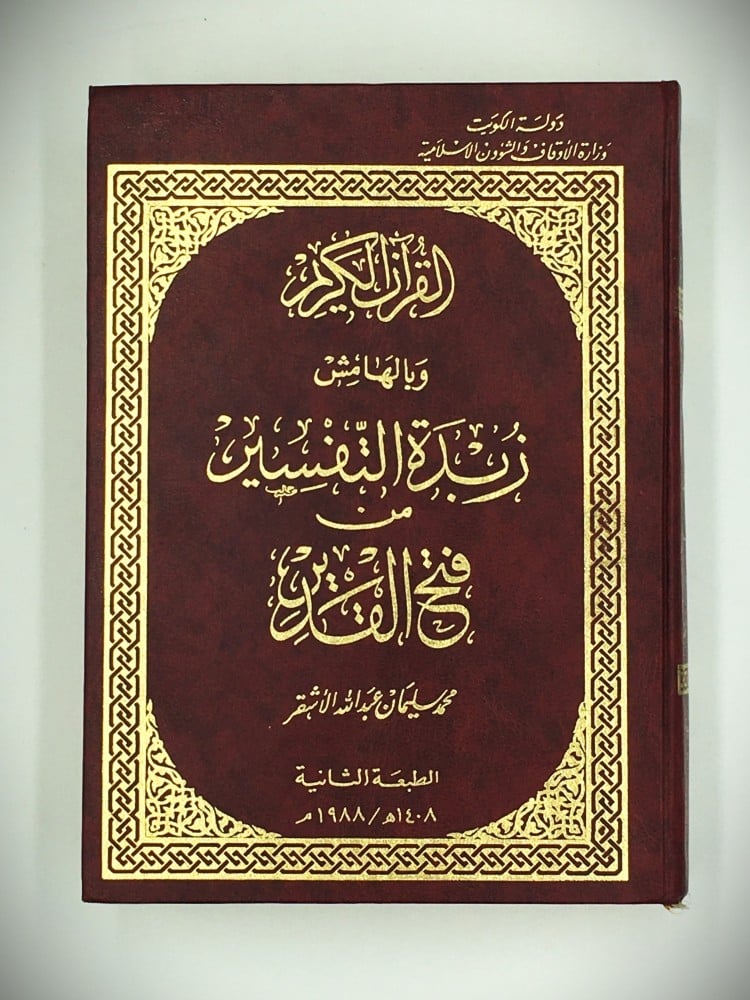 دولة الكويت
وزارة الأوقاف والشؤون الإسلامية
القرآن الكريم
وبالهامش
زبدة التفسير
من
فتح القدير
محمد سليمان عبدالله الأشقر
الطبعة الثانية
١٤٠٨هـ/١٩٨٨م